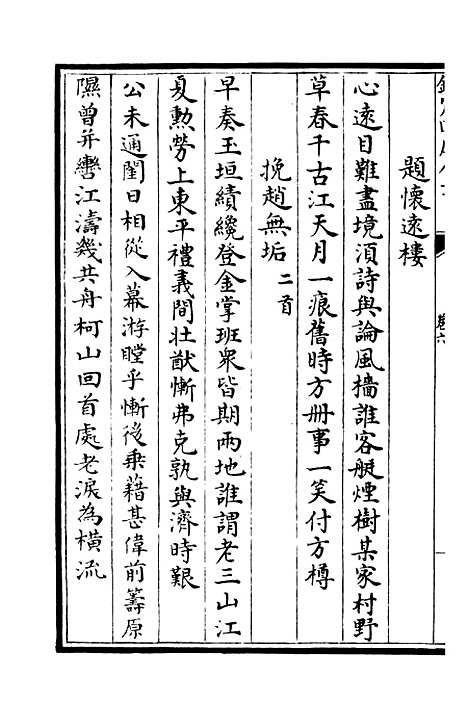 題懷遠樓
心遠目難盡境須詩與論風檣誰客艇煙樹某家村野
草春千古江天月一痕舊時方冊事一笑付方樽
挽趙無垢二首
早奏玉垣績纔登金掌班衆皆期兩地誰謂老三山江
夏勲勞上東平禮義間壮猷慚弗克孰與濟時艱
公未通閨日相從入幕游瞠乎慚後乗藉甚偉前籌原
隰曾并轡江濤幾共舟柯山回首處老淚為横流